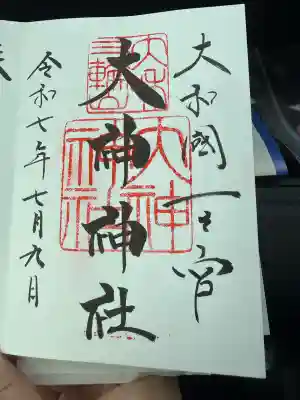 大和國一之宮
大神神社
令和七年七月九日